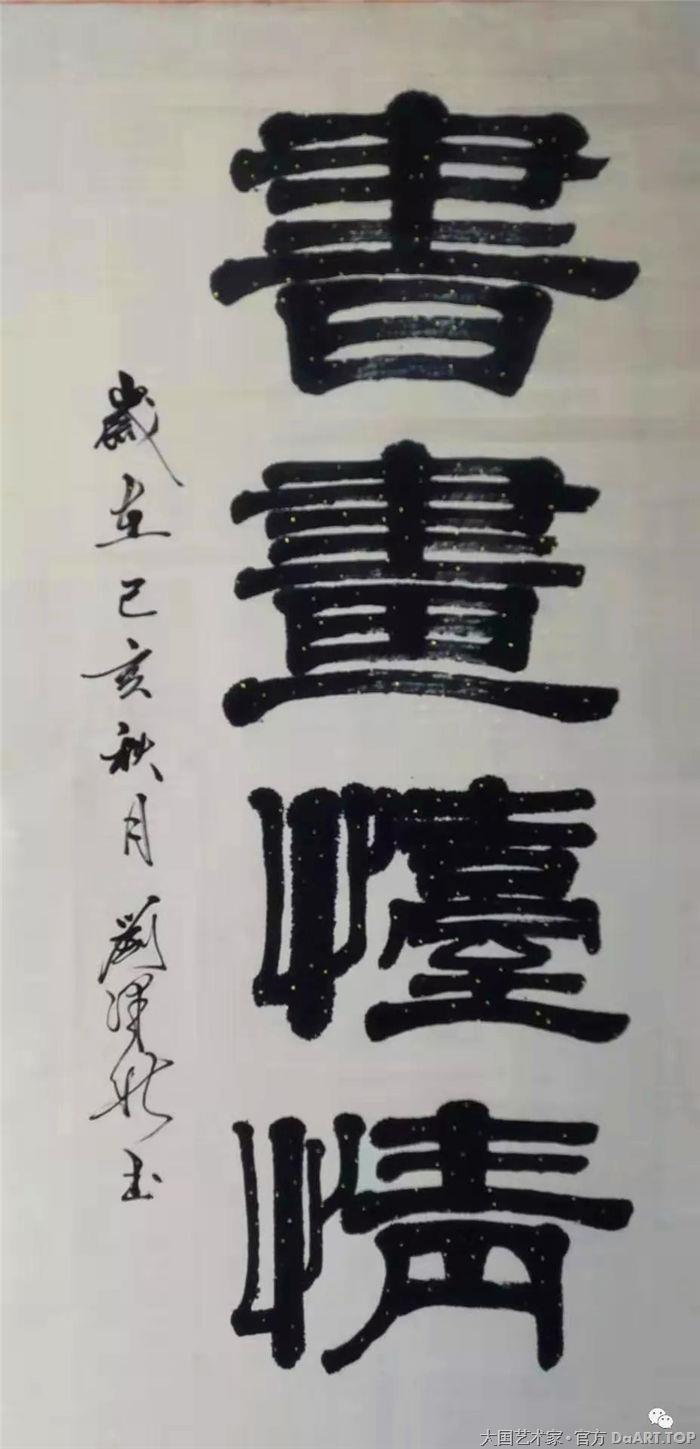 書畫懛情
歲在己亥秋月劉澤书
大国艺术家·官方 DaART.TOP